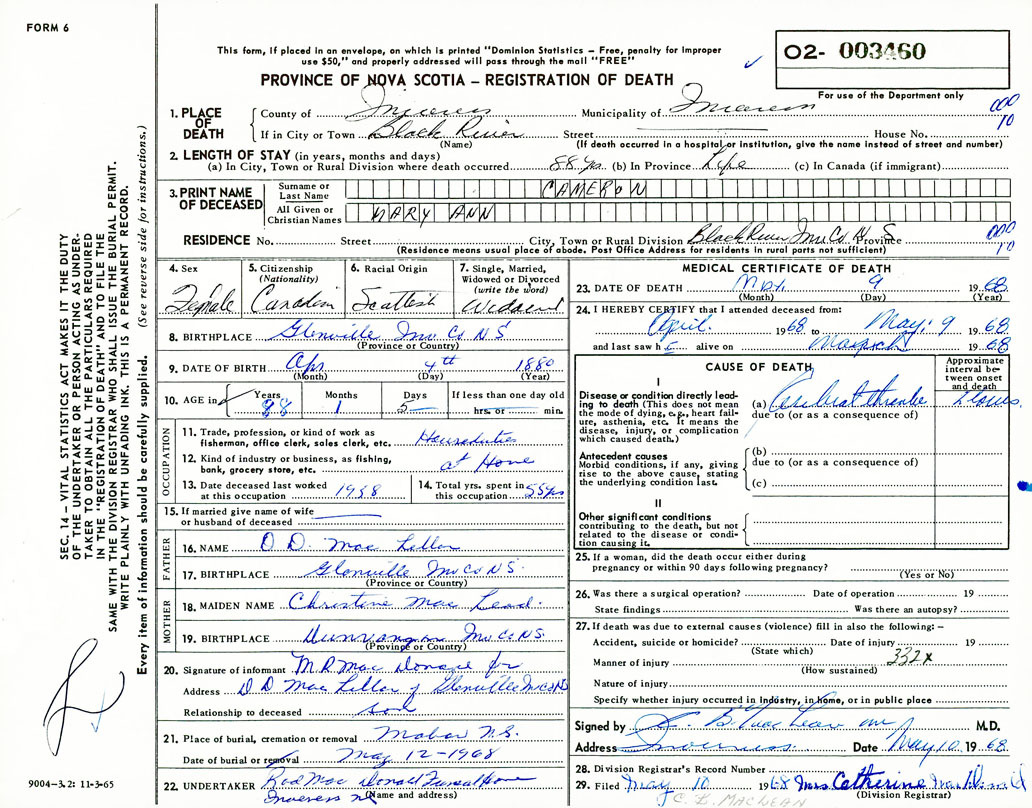 FORM 6
This form, if placed in an envelope, on which is printed "Dominion Statistics – Free, penalty for improper
use $50," and properly addressed will pass through the mail "FREE"
O2- 003460
PROVINCE OF NOVA SCOTIA – REGISTRATION OF DEATH
For use of the Department only
1. PLACE OF DEATH
County of Inverness Municipality of Inverness 000
If in City or Town Black River Street House No. 10
(Name) (If death occurred in a hospital or institution, give the name instead of street and number)
2. LENGTH OF STAY (in years, months and days)
(a) In City, Town or Rural Division where death occurred 88 yrs. (b) In Province Life (c) In Canada (if immigrant)
3. PRINT NAME OF DECEASED
Surname or Last Name CAMERON
All Given or Christian Names MARY ANN
RESIDENCE No. Street City, Town or Rural Division Black River Inv Co N S Province 000
(Residence means usual place of abode. Post Office Address for residents in rural parts not sufficient) 10
4. Sex Female
5. Citizenship (Nationality) Canadian
6. Racial Origin Scottish
7. Single, Married, Widowed or Divorced (write the word) Widowed
8. BIRTHPLACE Glenville Inv Co N S
(Province or Country)
9. DATE OF BIRTH Apr 4th 1880
(Month) (Day) (Year)
10. AGE in Years 88 Months 1 Days 5 If less than one day old hrs. or min.
OCCUPATION
11. Trade, profession, or kind of work as fisherman, office clerk, sales clerk, etc. Houseduties
12. Kind of industry or business, as fishing, bank, grocery store, etc. at Home
13. Date deceased last worked at this occupation 1958
14. Total yrs. spent in this occupation 55 yrs
15. If married give name of wife or husband of deceased
FATHER
16. NAME D. D. Mac Lellan
17. BIRTHPLACE Glenville Inv Co N S.
(Province or Country)
MOTHER
18. MAIDEN NAME Christine Mac Leod.
19. BIRTHPLACE Dunvegan Inv Co N S.
(Province or Country)
20. Signature of informant M R Mac Donald for
Address D D Mac Lellan Glenville Inv Co N S
Relationship to deceased son
21. Place of burial, cremation or removal Mabou N.S.
Date of burial or removal May 12 - 1968
22. UNDERTAKER Rod Mac Donald Funeral Home
(Name and address)
Inverness N S
MEDICAL CERTIFICATE OF DEATH
23. DATE OF DEATH May 9 1968
(Month) (Day) (Year)
24. I HEREBY CERTIFY that I attended deceased from:
April. 1968 to May: 9 1968
and last saw h alive on 1968
CAUSE OF DEATH
Approximate interval between onset and death
I
Disease or condition directly leading to death (This does not mean the mode of dying, e.g., heart failure, asthenia, etc. It means the disease, injury, or complication which caused death.)
(a) Cerebral
due to (or as a consequence of)
Antecedent causes
Morbid conditions, if any, giving rise to the above cause, stating the underlying condition last.
(b)
due to (or as a consequence of)
(c)
II
Other significant conditions contributing to the death, but not related to the disease or condition causing it.
25. If a woman, did the death occur either during pregnancy or within 90 days following pregnancy?
(Yes or No)
26. Was there a surgical operation? Date of operation 19
State findings Was there an autopsy?
27. If death was due to external causes (violence) fill in also the following: –
Accident, suicide or homicide? Date of injury 19
(State which)
Manner of injury 332X
(How sustained)
Nature of injury
Specify whether injury occurred in industry, in home, or in public place
Signed by B. MacLean M.D.
Address Inverness Date May 10 1968
28. Division Registrar's Record Number
29. Filed May 10 1968 Mrs. Catherine
(Division Registrar)
C. B. MACLEAN
SEC. 14 – VITAL STATISTICS ACT MAKES IT THE DUTY
OF THE UNDERTAKER OR PERSON ACTING AS UNDER-
TAKER TO OBTAIN ALL THE PARTICULARS REQUIRED
IN THE "REGISTRATION OF DEATH" AND TO FILE THE
SAME WITH THE DIVISION REGISTRAR WHO SHALL ISSUE THE BURIAL PERMIT.
WRITE PLAINLY WITH UNFADING INK. THIS IS A PERMANENT RECORD.
Every item of information should be carefully supplied. (See reverse side for instructions.)
9004-3.2: 11-3-65